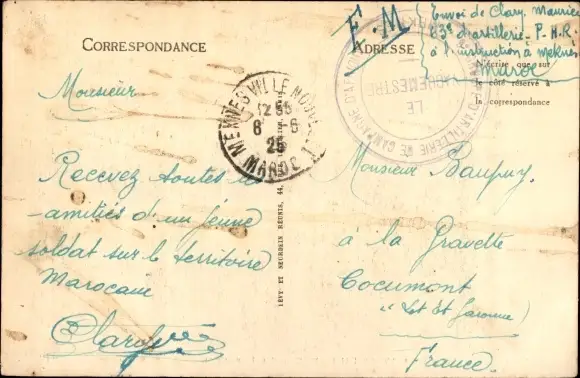 CORRESPONDANCE
Monsieur
Recevez toutes le
-amitiés d'un jeune
soldat sur le territoire
Marocain
Clary
MEKNES VILLE NOUVELLE
12 35
6 - 6
25
MAROC
LEVY ET NEURDEIN REUNIS, 44,
F.M
ADRESSE
Envoi de Clary Maurice
63e d'artillerie - P.H.R.
à l'instruction à Meknes
Maroc
N'écrire que sur
le côté réservé à
la correspondance
D'ARTILLERIE DE CAMPAGNE D'A
LE
VAGUEMESTRE
Monsieur
à la Gravette
Cocumont
"Lot Et Garonne"
France.